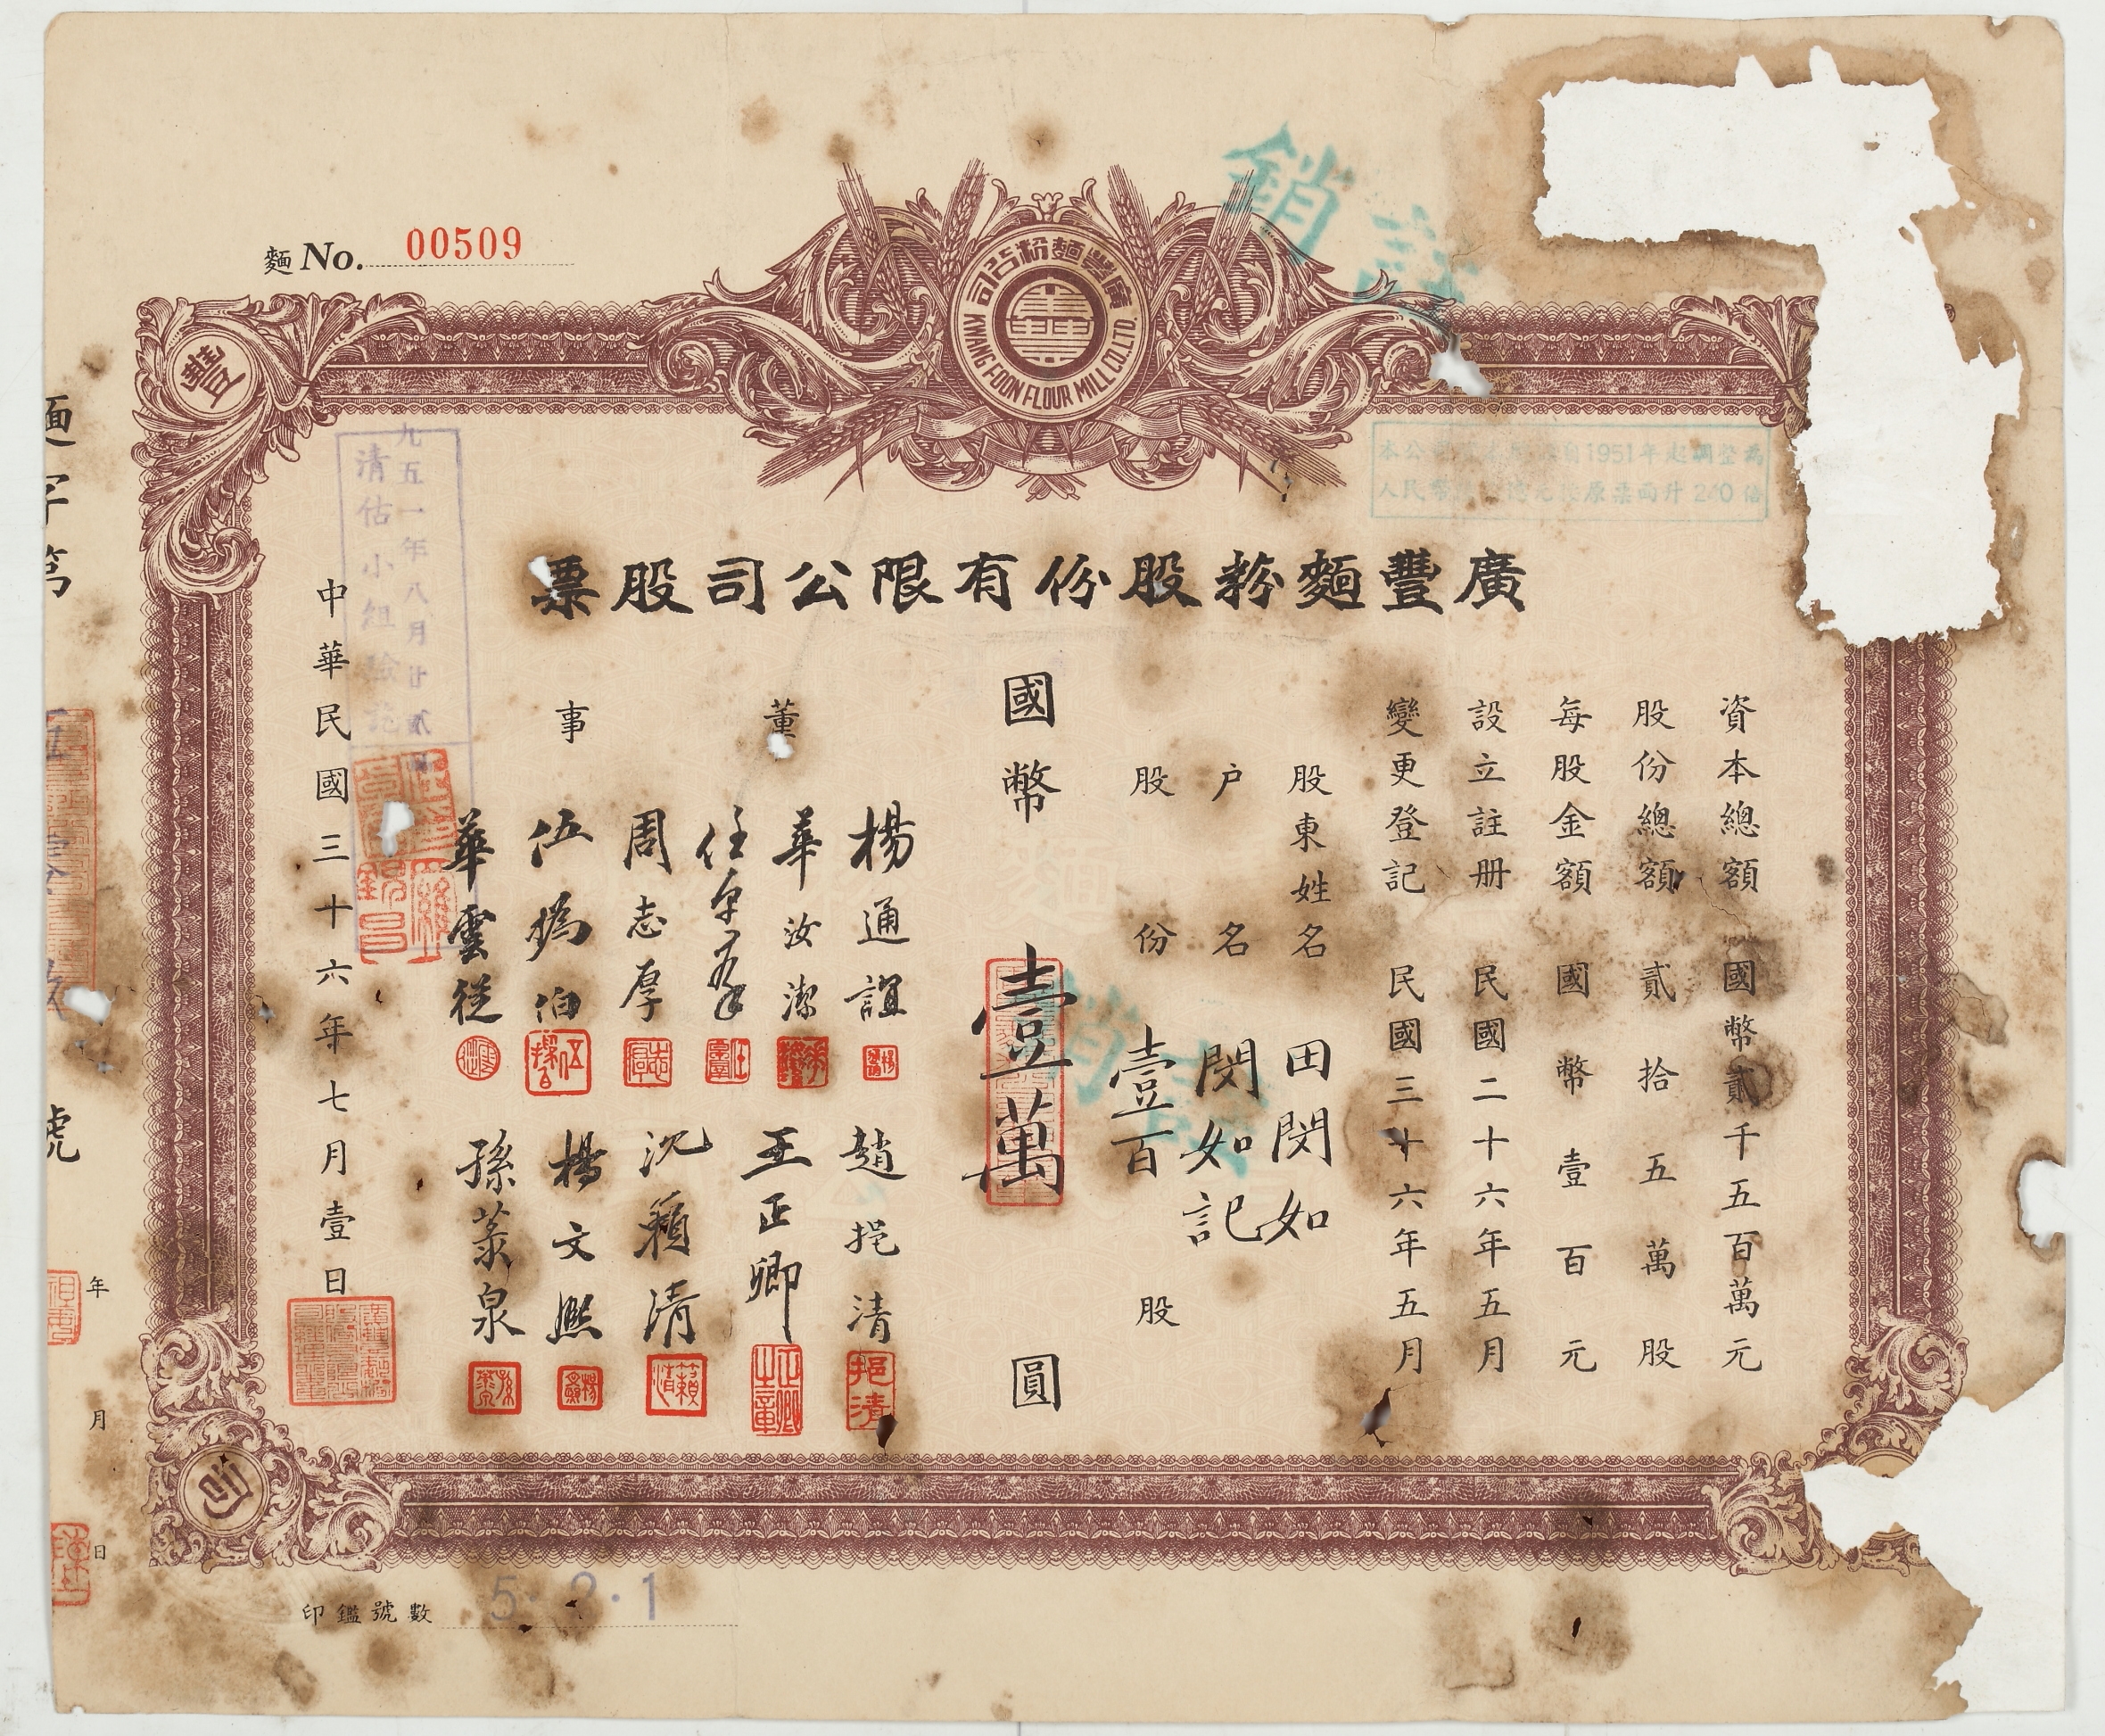 麵 No. 00509
廣豐麵粉公司
KWANG FOON FLOUR MILL CO.LTD.
豐
司
註銷
本公司 自1951年起調整為
人民幣 元 原票面升 240 倍
廣豐麵粉股份有限公司股票
資本總額 國幣貳千五百萬元
股份總額 貳拾五萬股
每股金額 國幣壹百元
設立註册 民國二十六年五月
變更登記 民國三十六年五月
股東姓名 田閔如
户名 閔如記
股份 壹百股
國幣 壹萬 圓
註銷
董事
楊通誼
華汝潔
任卓羣
周志厚
伍 伯
華雲從
趙挹清
王正卿
沈籟清
楊文熙
孫蒸泉
挹清
正卿
籟清
志厚
中華民國三十六年七月壹日
九五一年八月廿貳
清估小組驗訖
錫昌
麵字第
號
年
月
日
印鑑號數 5 2 1